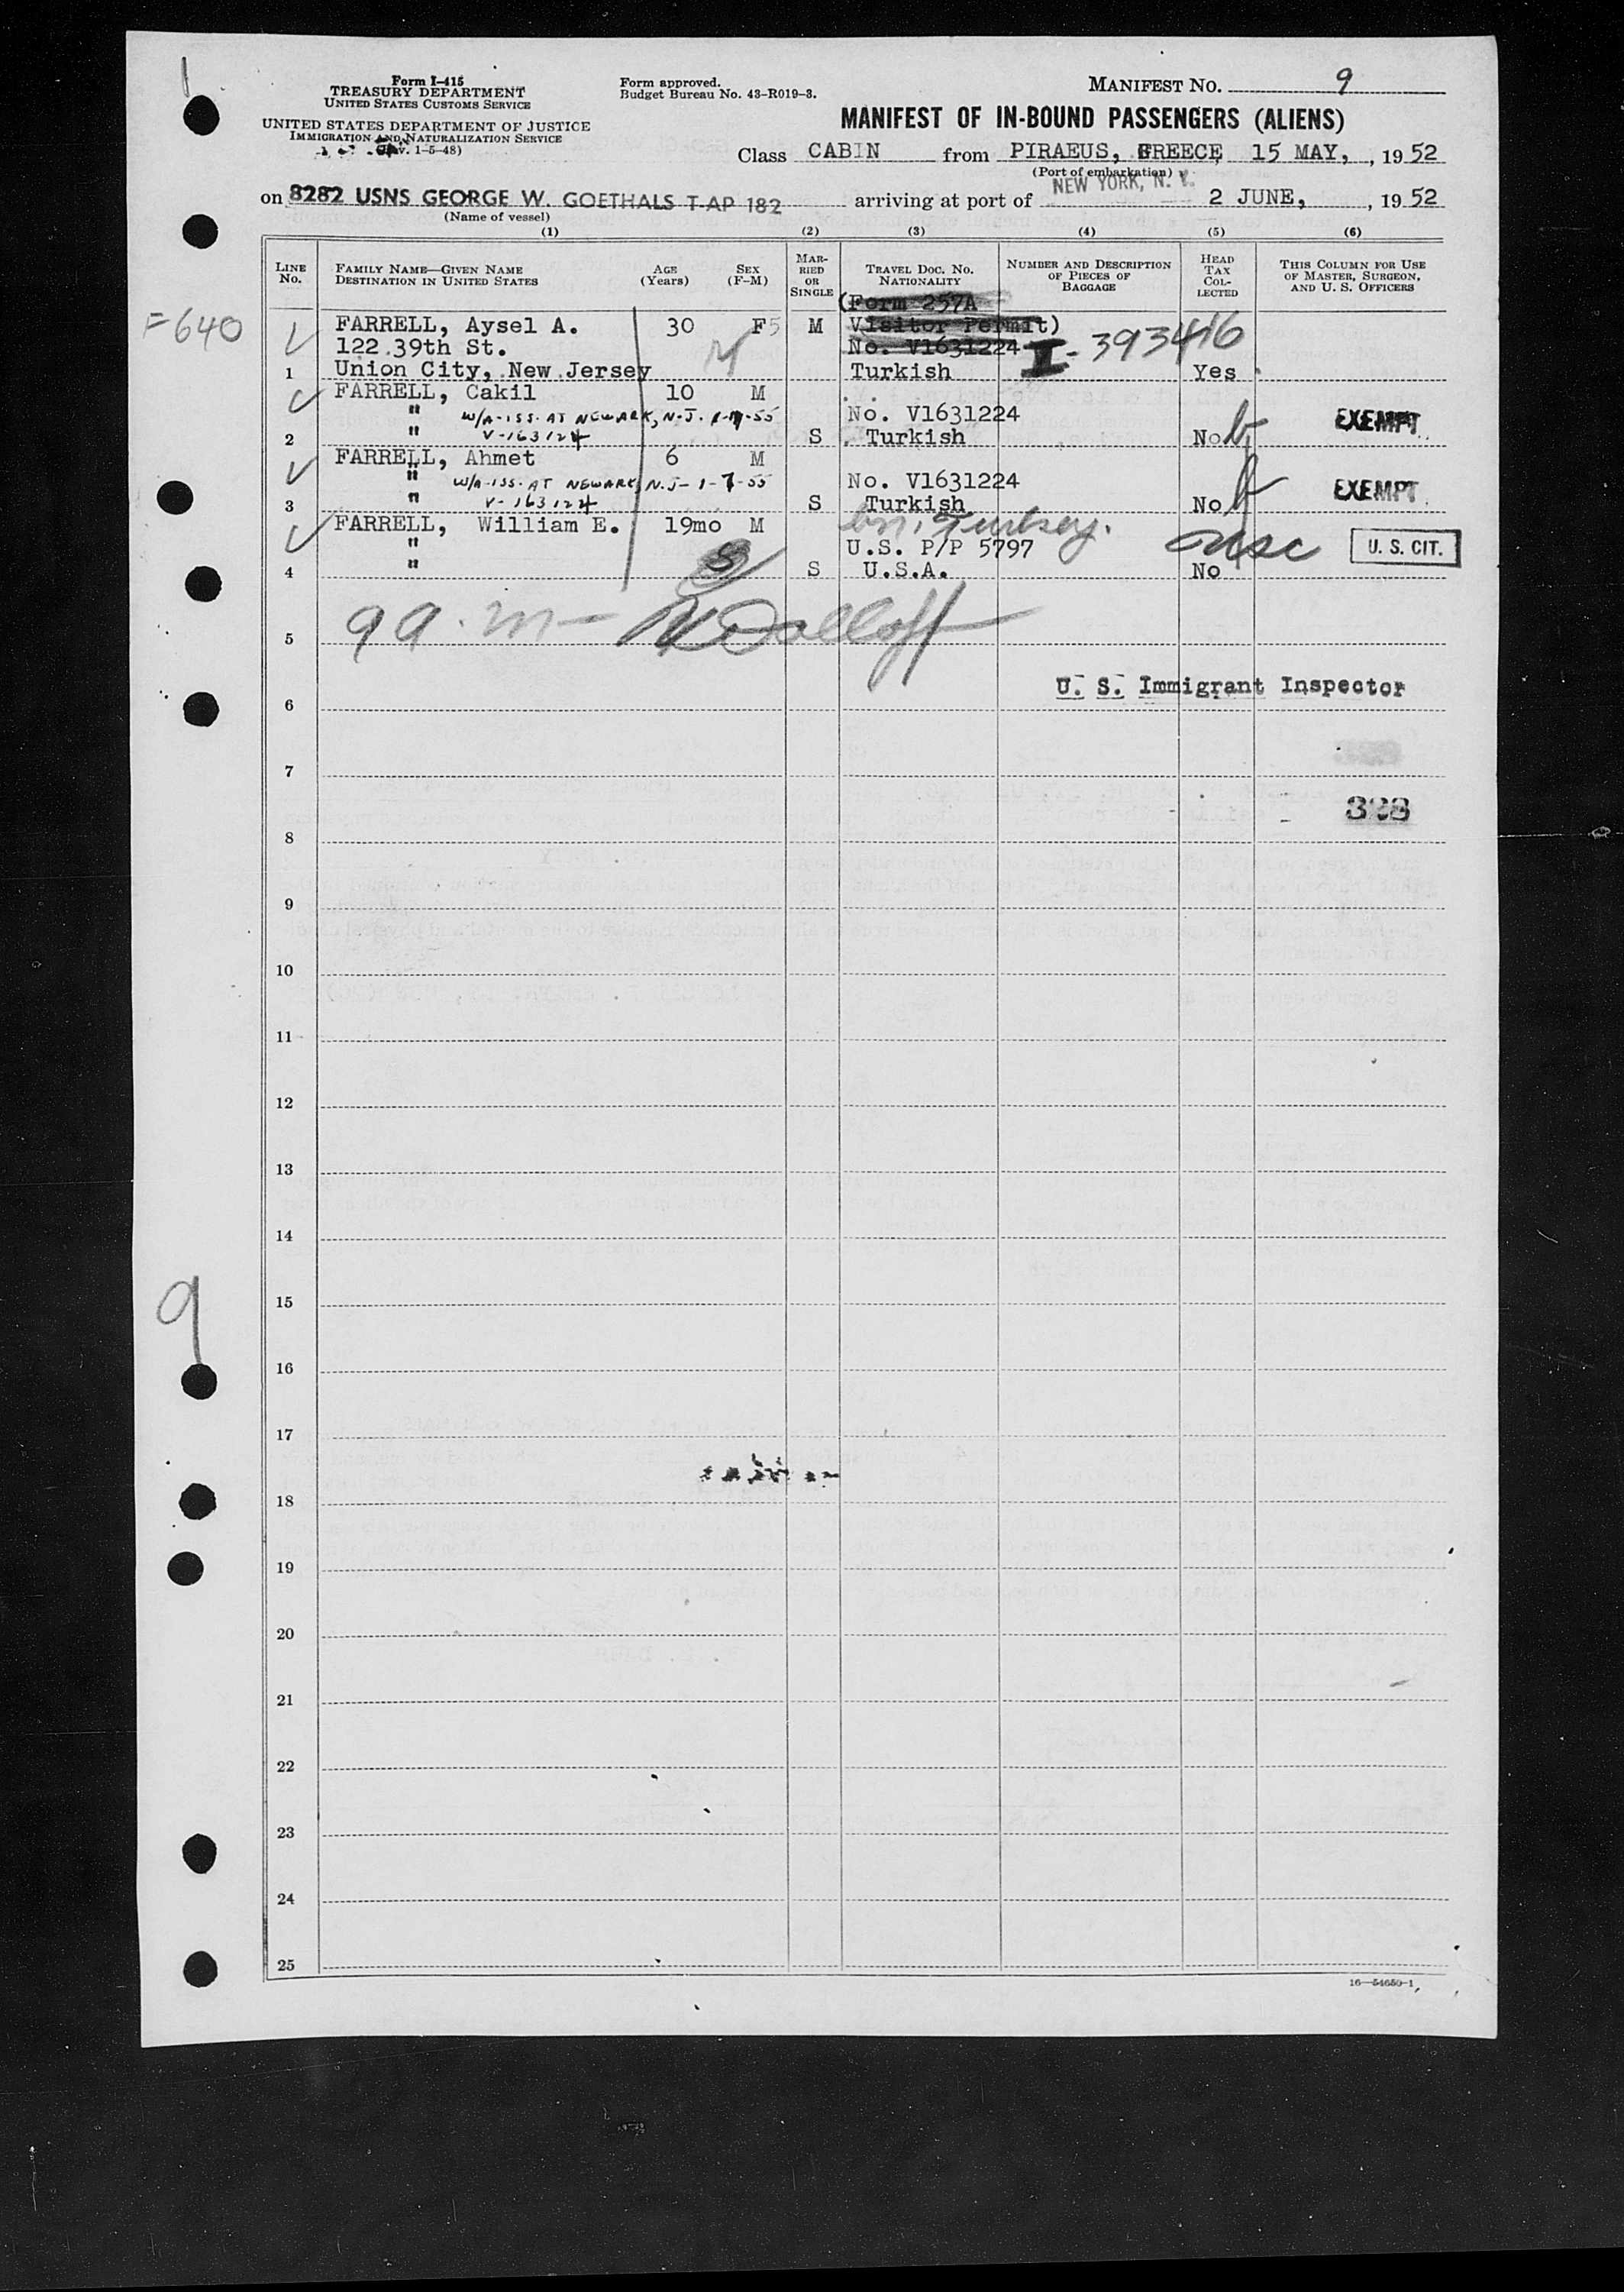 Form I-415
TREASURY DEPARTMENT
UNITED STATES CUSTOMS SERVICE
UNITED STATES DEPARTMENT OF JUSTICE
IMMIGRATION AND NATURALIZATION SERVICE
(Rev. 1-5-48)
Form approved.
Budget Bureau No. 43-R019-3.
MANIFEST NO. 9
MANIFEST OF IN-BOUND PASSENGERS (ALIENS)
Class CABIN from PIRAEUS, GREECE 15 MAY, , 19 52
(Port of embarkation)
on 8282 USNS GEORGE W. GOETHALS T-AP 182 arriving at port of NEW YORK, N. Y. 2 JUNE, , 19 52
(Name of vessel)
(1) (2) (3) (4) (5) (6)
LINE No. FAMILY NAME—GIVEN NAME DESTINATION IN UNITED STATES AGE (Years) SEX (F-M) MARRIED OR SINGLE TRAVEL DOC. NO. NATIONALITY NUMBER AND DESCRIPTION OF PIECES OF BAGGAGE HEAD TAX COLLECTED THIS COLUMN FOR USE OF MASTER, SURGEON, AND U. S. OFFICERS
(Form 257A
F-640 FARRELL, Aysel A. 30 F M Visitor Permit)
122 39th St. No. V1631224 I-393416
1 Union City, New Jersey Turkish Yes
FARRELL, Cakil 10 M
" W/A-ISS. AT NEWARK, N.J. 1-7-55 No. V1631224 EXEMPT
2 " V-163124 S Turkish No
FARRELL, Ahmet 6 M
" W/A-ISS. AT NEWARK, N.J- 1-7-55 No. V1631224 EXEMPT
3 " V-163124 S Turkish No
FARRELL, William E. 19mo M bn. Turkey.
" U.S. P/P 5797 USC U. S. CIT.
4 " S U.S.A. No
5
U. S. Immigrant Inspector
6
7
8
9
10
11
12
13
14
15
9
16
17
18
19
20
21
22
23
24
25
16—54650-1